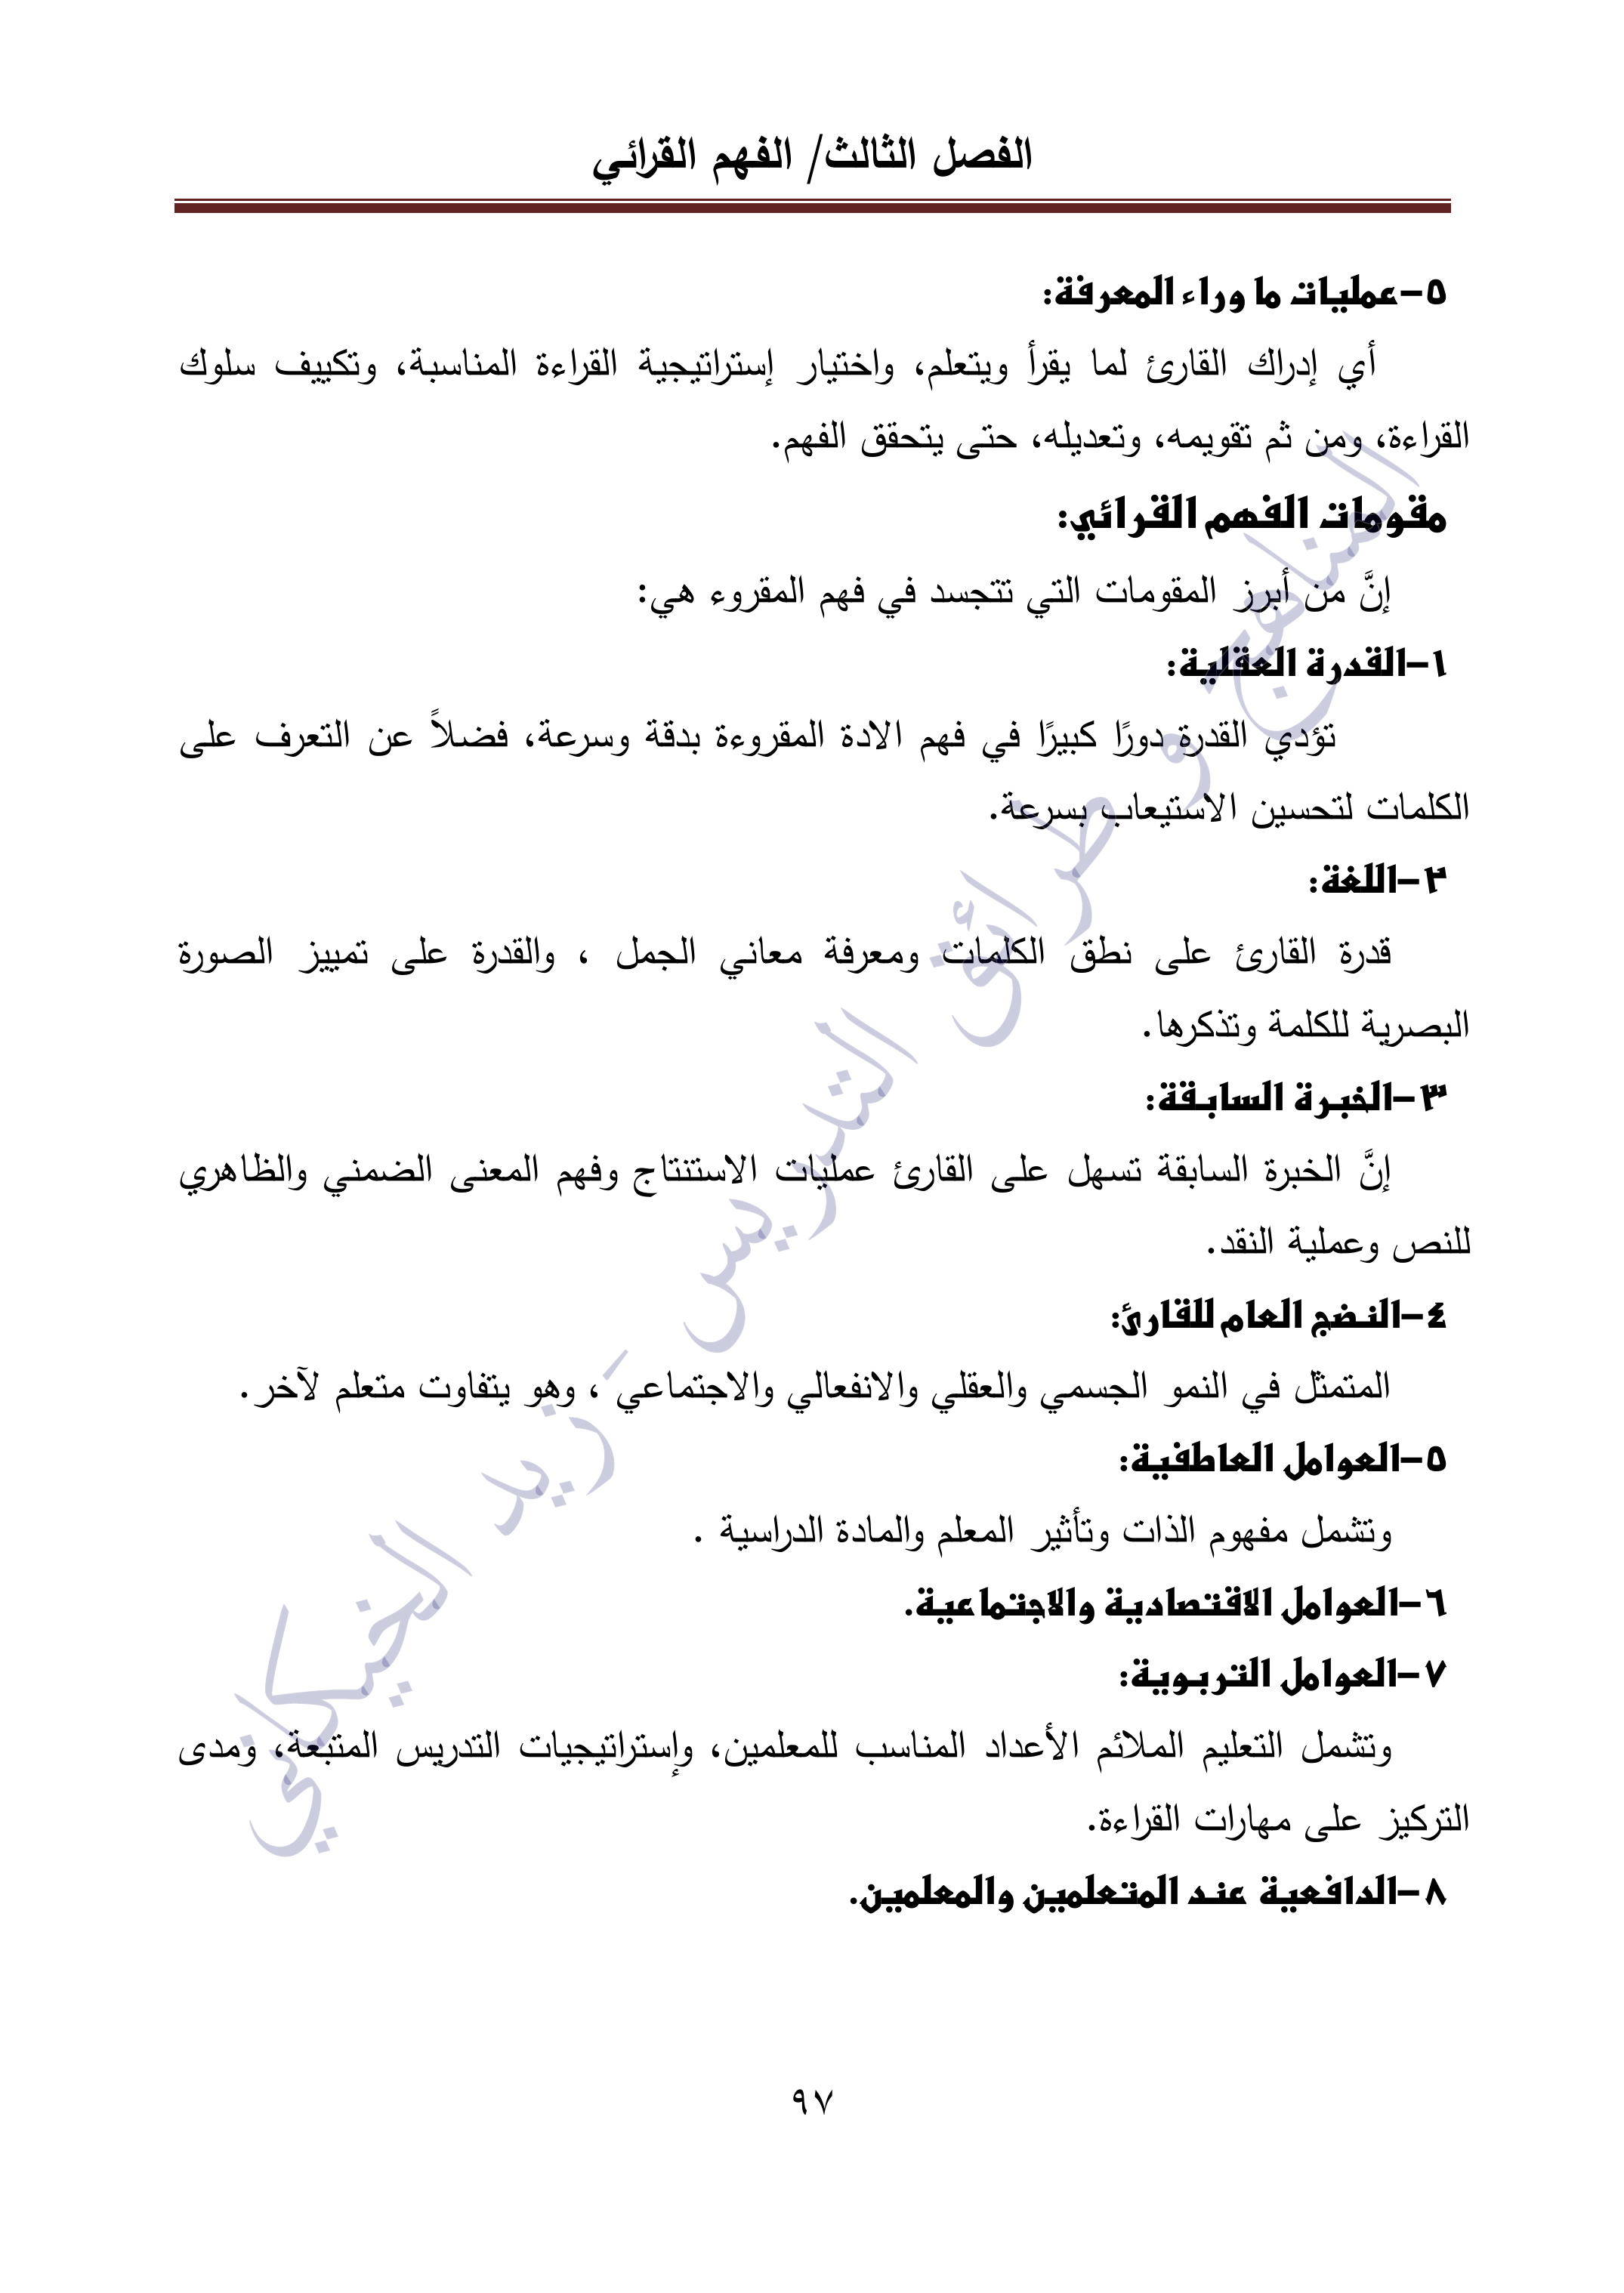 الفصل الثالث/ الفهم القرائي
٥-عمليات ما وراء المعرفة:
أي إدراك القارئ لما يقرأ ويتعلم، واختيار إستراتيجية القراءة المناسبة، وتكييف سلوك
القراءة، ومن ثم تقويمه، وتعديله، حتى يتحقق الفهم.
مقومات الفهم القرائي:
إنَّ من أبرز المقومات التي تتجسد في فهم المقروء هي:
١-القدرة العقلية:
تؤدي القدرة دورًا كبيرًا في فهم الادة المقروءة بدقة وسرعة، فضلاً عن التعرف على
الكلمات لتحسين الاستيعاب بسرعة.
٢-اللغة:
قدرة القارئ على نطق الكلمات ومعرفة معاني الجمل ، والقدرة على تمييز الصورة
البصرية للكلمة وتذكرها.
٣-الخبرة السابقة:
إنَّ الخبرة السابقة تسهل على القارئ عمليات الاستنتاج وفهم المعنى الضمني والظاهري
للنص وعملية النقد.
٤-النضج العام للقارئ:
المتمثل في النمو الجسمي والعقلي والانفعالي والاجتماعي ، وهو يتفاوت متعلم لآخر.
٥-العوامل العاطفية:
وتشمل مفهوم الذات وتأثير المعلم والمادة الدراسية .
٦-العوامل الاقتصادية والاجتماعية.
٧-العوامل التربوية:
وتشمل التعليم الملائم الأعداد المناسب للمعلمين، وإستراتيجيات التدريس المتبعة، ومدى
التركيز على مهارات القراءة.
٨-الدافعية عند المتعلمين والمعلمين.
المناهج و طرائق التدريس - زيد الخيكاني
٩٧